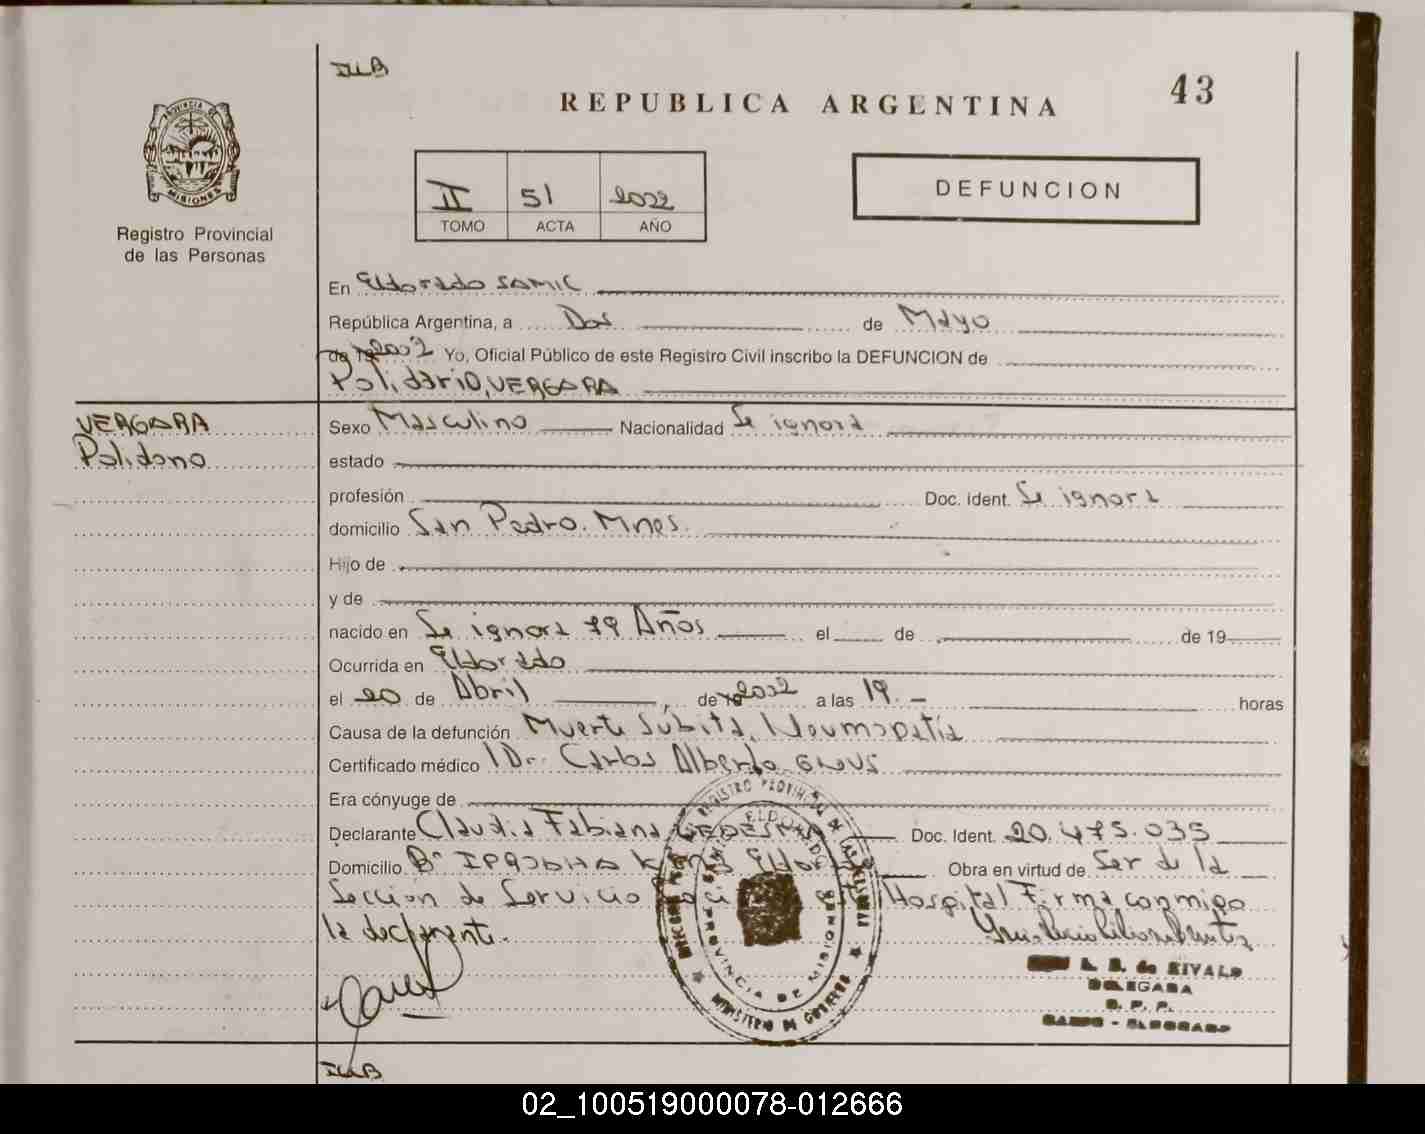 ILLB
REPUBLICA ARGENTINA
43
PROVINCIA DE
MISIONES
Registro Provincial
de las Personas
II 51 2002
TOMO ACTA AÑO
DEFUNCION
En Eldorado SAMIC
República Argentina, a Dos de Mayo
de 19 2002 Yo, Oficial Público de este Registro Civil inscribo la DEFUNCION de
Polidorio, VERGARA
VERGARA
Polidorio
Sexo Masculino Nacionalidad Se ignora
estado
profesión Doc. Ident. Se ignora
domicilio San Pedro. Mnes.
Hijo de
y de
nacido en Se ignora 79 Años el de de 19
Ocurrida en Eldorado
el 20 de Abril, de 19 2002 a las 19.- horas
Causa de la defunción Muerte Subita, Neumopatía
Certificado médico Dr. Carlos Alberto
Era cónyuge de
Declarante Claudia Fabiana LEDESMA Doc. Ident. 20.475.035
Domicilio Bº Km 9 Eldorado Obra en virtud de Ser de la
Sección de Servicio Social del Hospital Firma conmigo
la declarante.
REGISTRO PROVINCIAL DE LAS PERSONAS
ELDORADO
PROVINCIA DE MISIONES
MINISTERIO DE GOBIERNO
L. B. de RIVALO
DELEGADA
R. P. P.
SAMIC - ELDORADO
ILLB
02_100519000078-012666